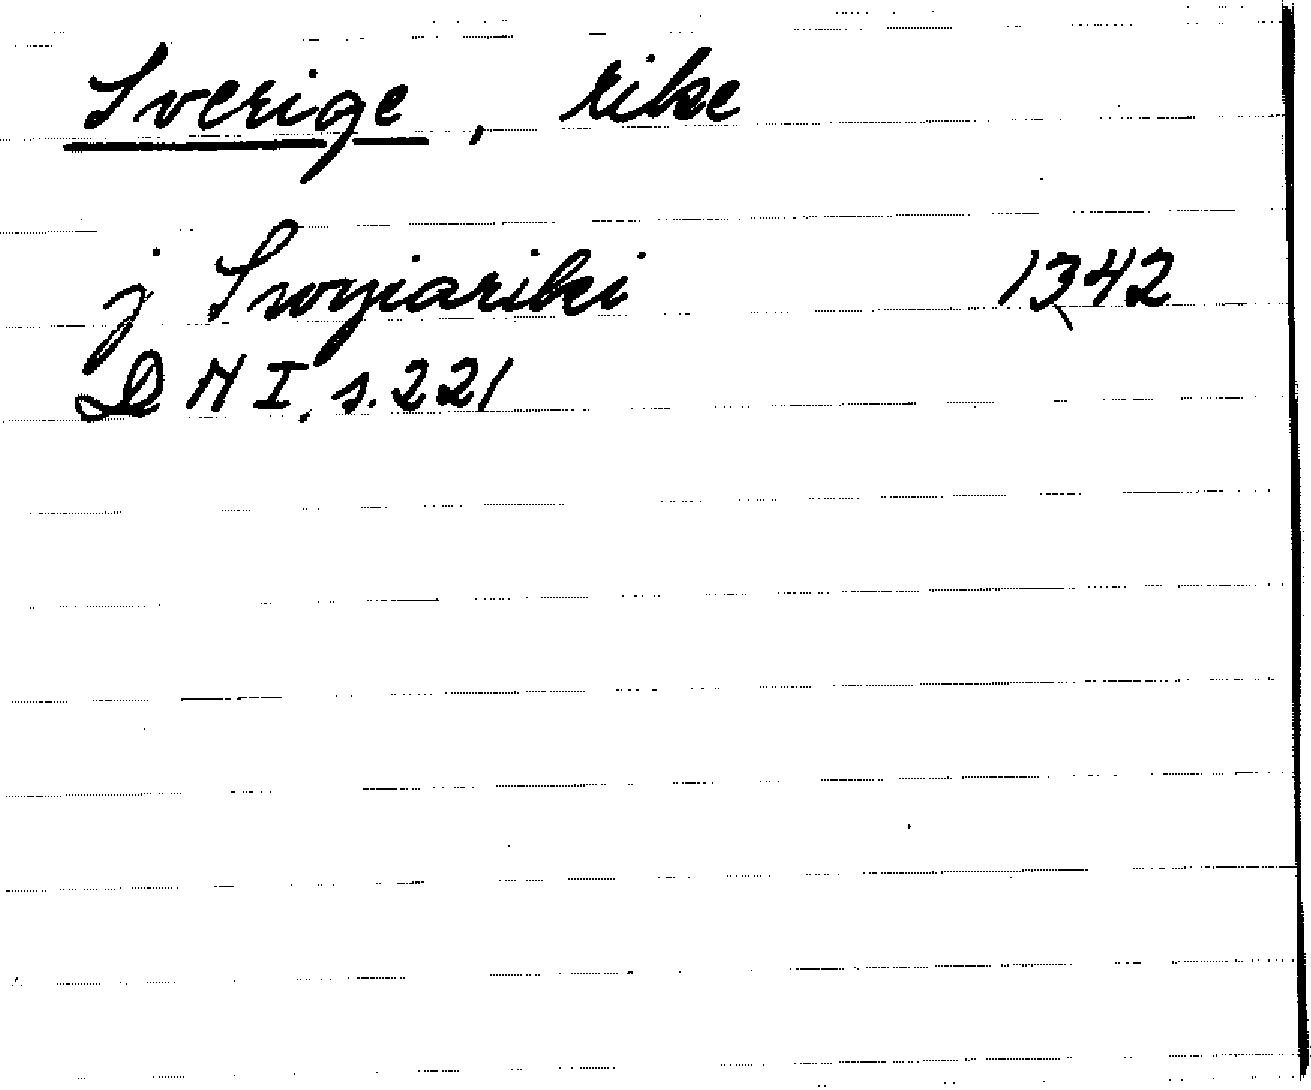 Sverige, rike
j Swyiariki 1342
DN I, s. 221